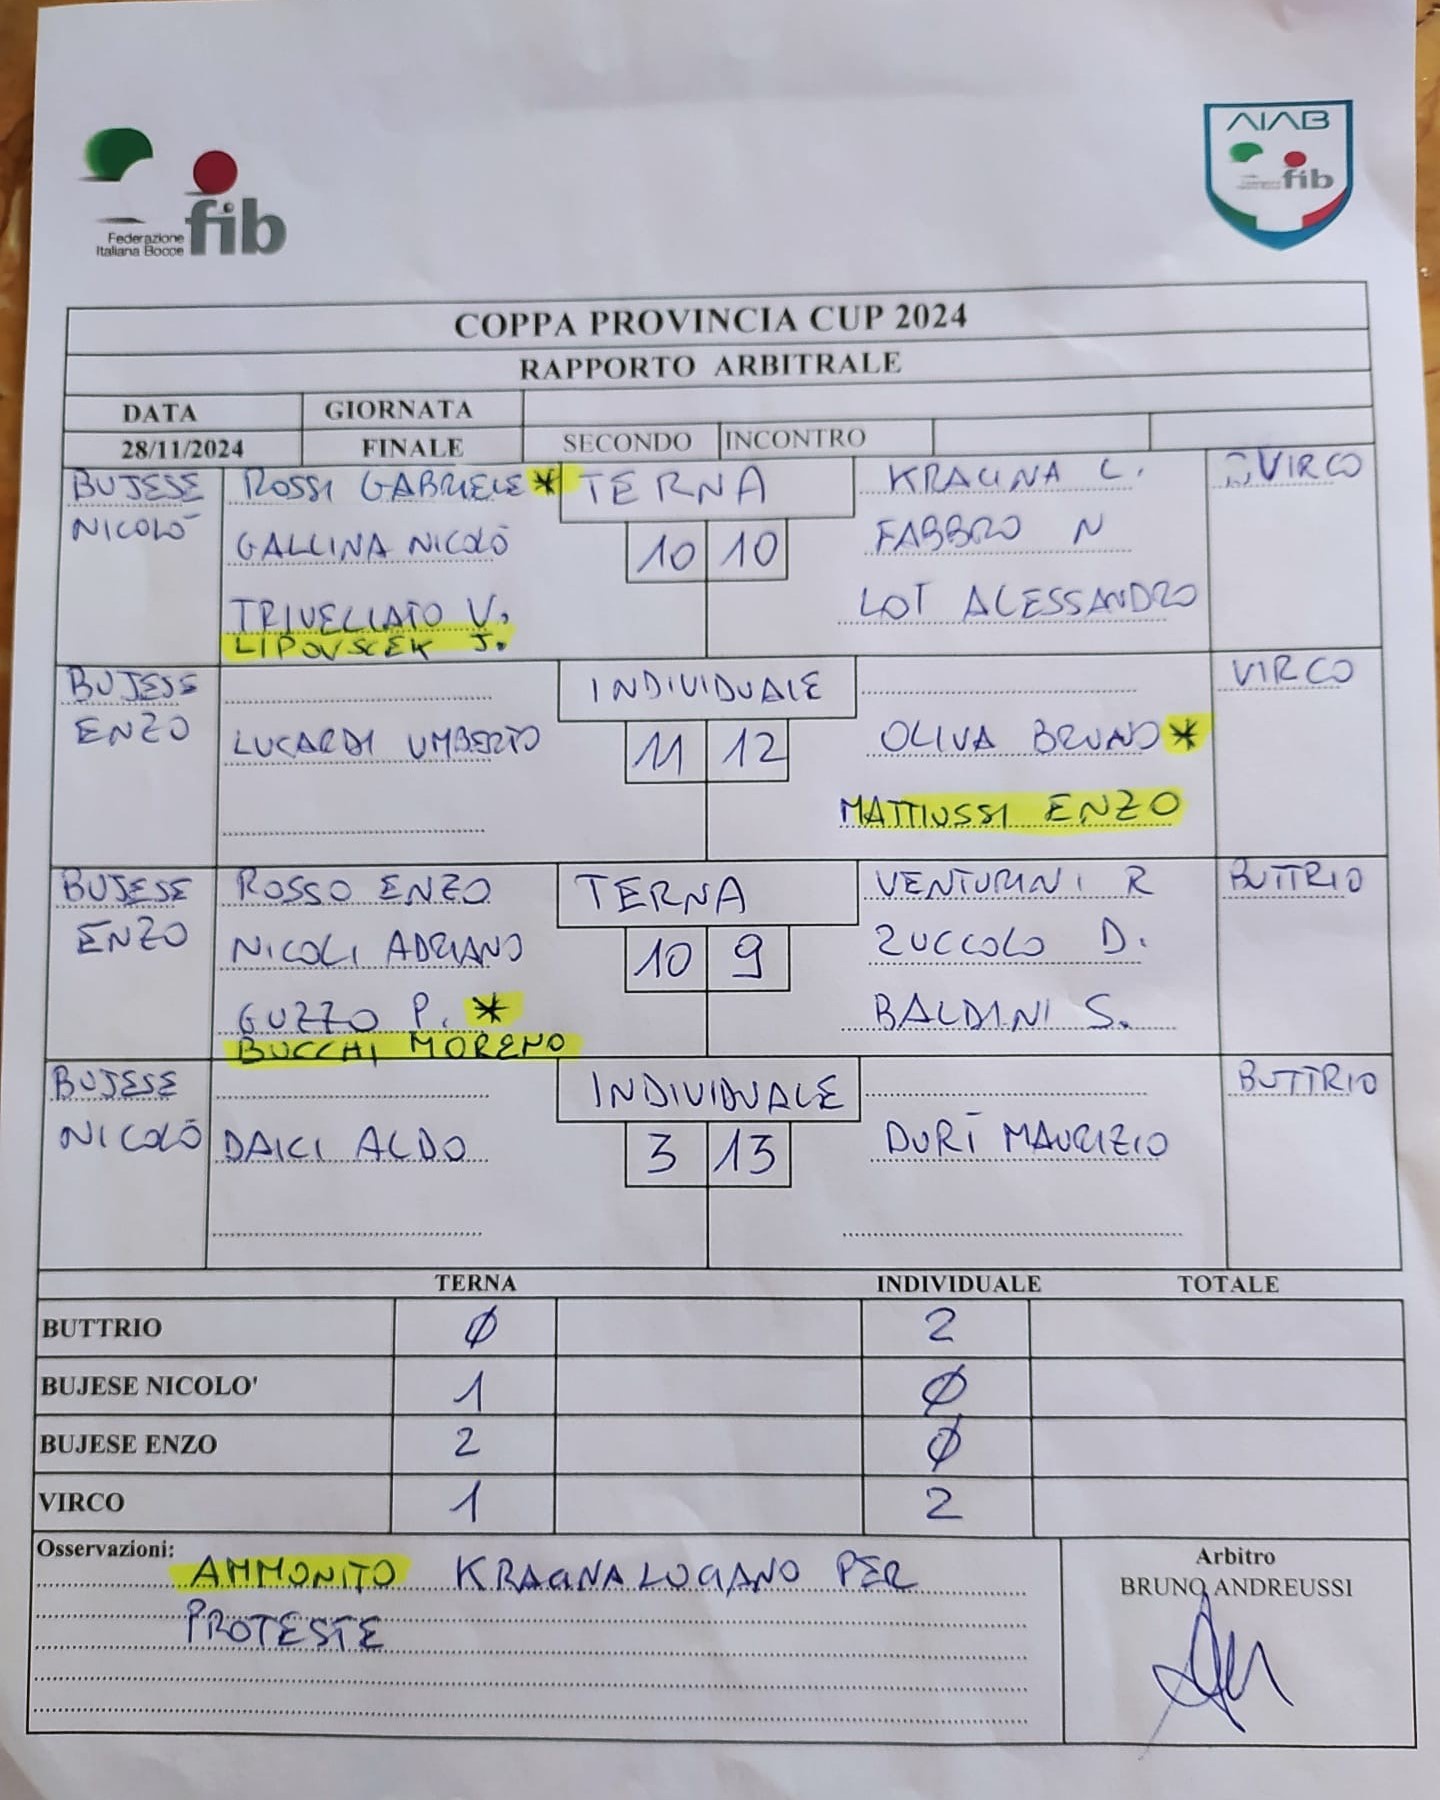 Federazione
Italiana Bocce
fib
AIAB
fib
COPPA PROVINCIA CUP 2024
RAPPORTO ARBITRALE
DATA GIORNATA
28/11/2024 FINALE SECONDO INCONTRO
BUJESE ROSSI GABRIELE* TERNA KRAGNA L. VIRCO
NICOLÒ GALLINA NICOLÒ 10 10 FABBRO N
TRIVELLATO V. LOT ALESSANDRO
LIPOVSCEK J.
BUJESE INDIVIDUALE VIRCO
ENZO LUCARDI UMBERTO 11 12 OLIVA BRUNO*
MATTIUSSI ENZO
BUJESE ROSSO ENZO TERNA VENTURINI R BUTTRIO
ENZO NICOLI ADRIANO 10 9 ZUCCOLO D.
GUZZO P. * BALDINI S.
BUCCHI MORENO
BUJESE INDIVIDUALE BUTTRIO
NICOLÒ DAICI ALDO 3 13 DURÌ MAURIZIO
TERNA INDIVIDUALE TOTALE
BUTTRIO Ø 2
BUJESE NICOLO' 1 Ø
BUJESE ENZO 2 Ø
VIRCO 1 2
Osservazioni: AMMONITO KRAGNA LUGANO PER
PROTESTE
Arbitro
BRUNO ANDREUSSI